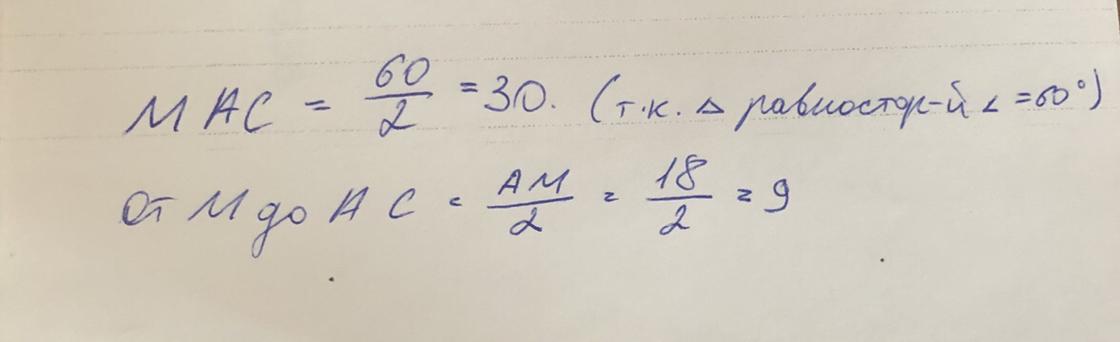 MAC = 60/2 = 30. (т.к. △ равностор-й ∠ = 60°)
От M до AC = AM/2 = 18/2 = 9